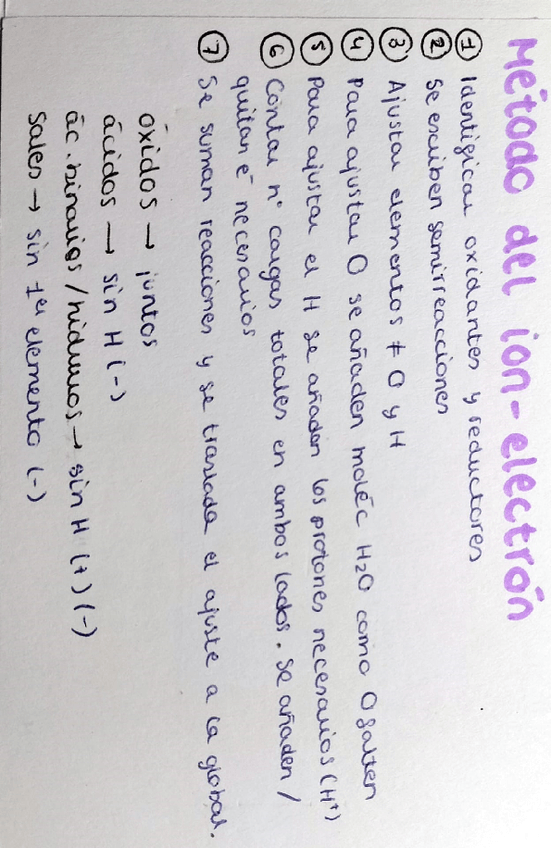 Método del ion-electrón
① Identificar oxidantes y reductores
② Se escriben semirreacciones
③ Ajustar elementos ≠ O y H
④ Para ajustar O se añaden moléc H₂O como O falten
⑤ Para ajustar el H se añaden los protones necesarios (H⁺)
⑥ Contar nº cargas totales en ambos lados. Se añaden /
quitan e⁻ necesarios
⑦ Se suman reacciones y se traslada el ajuste a la global.
óxidos → juntos
ácidos → sin H (-)
ác. binarios / hidruros → sin H (+) (-)
Sales → sin 1er elemento (-)